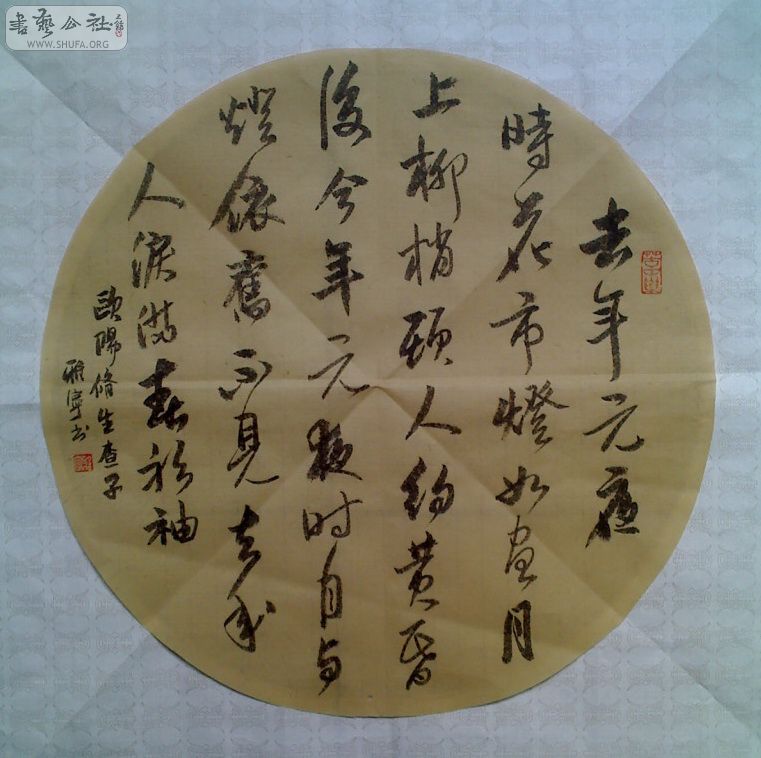 書藝公社
WWW.SHUFA.ORG
去年元夜
時花市燈如晝月
上柳梢頭人約黄昏
後今年元夜时月与
燈依舊不見去年
人淚滿春衫袖
歐陽脩生查子
雅寧书